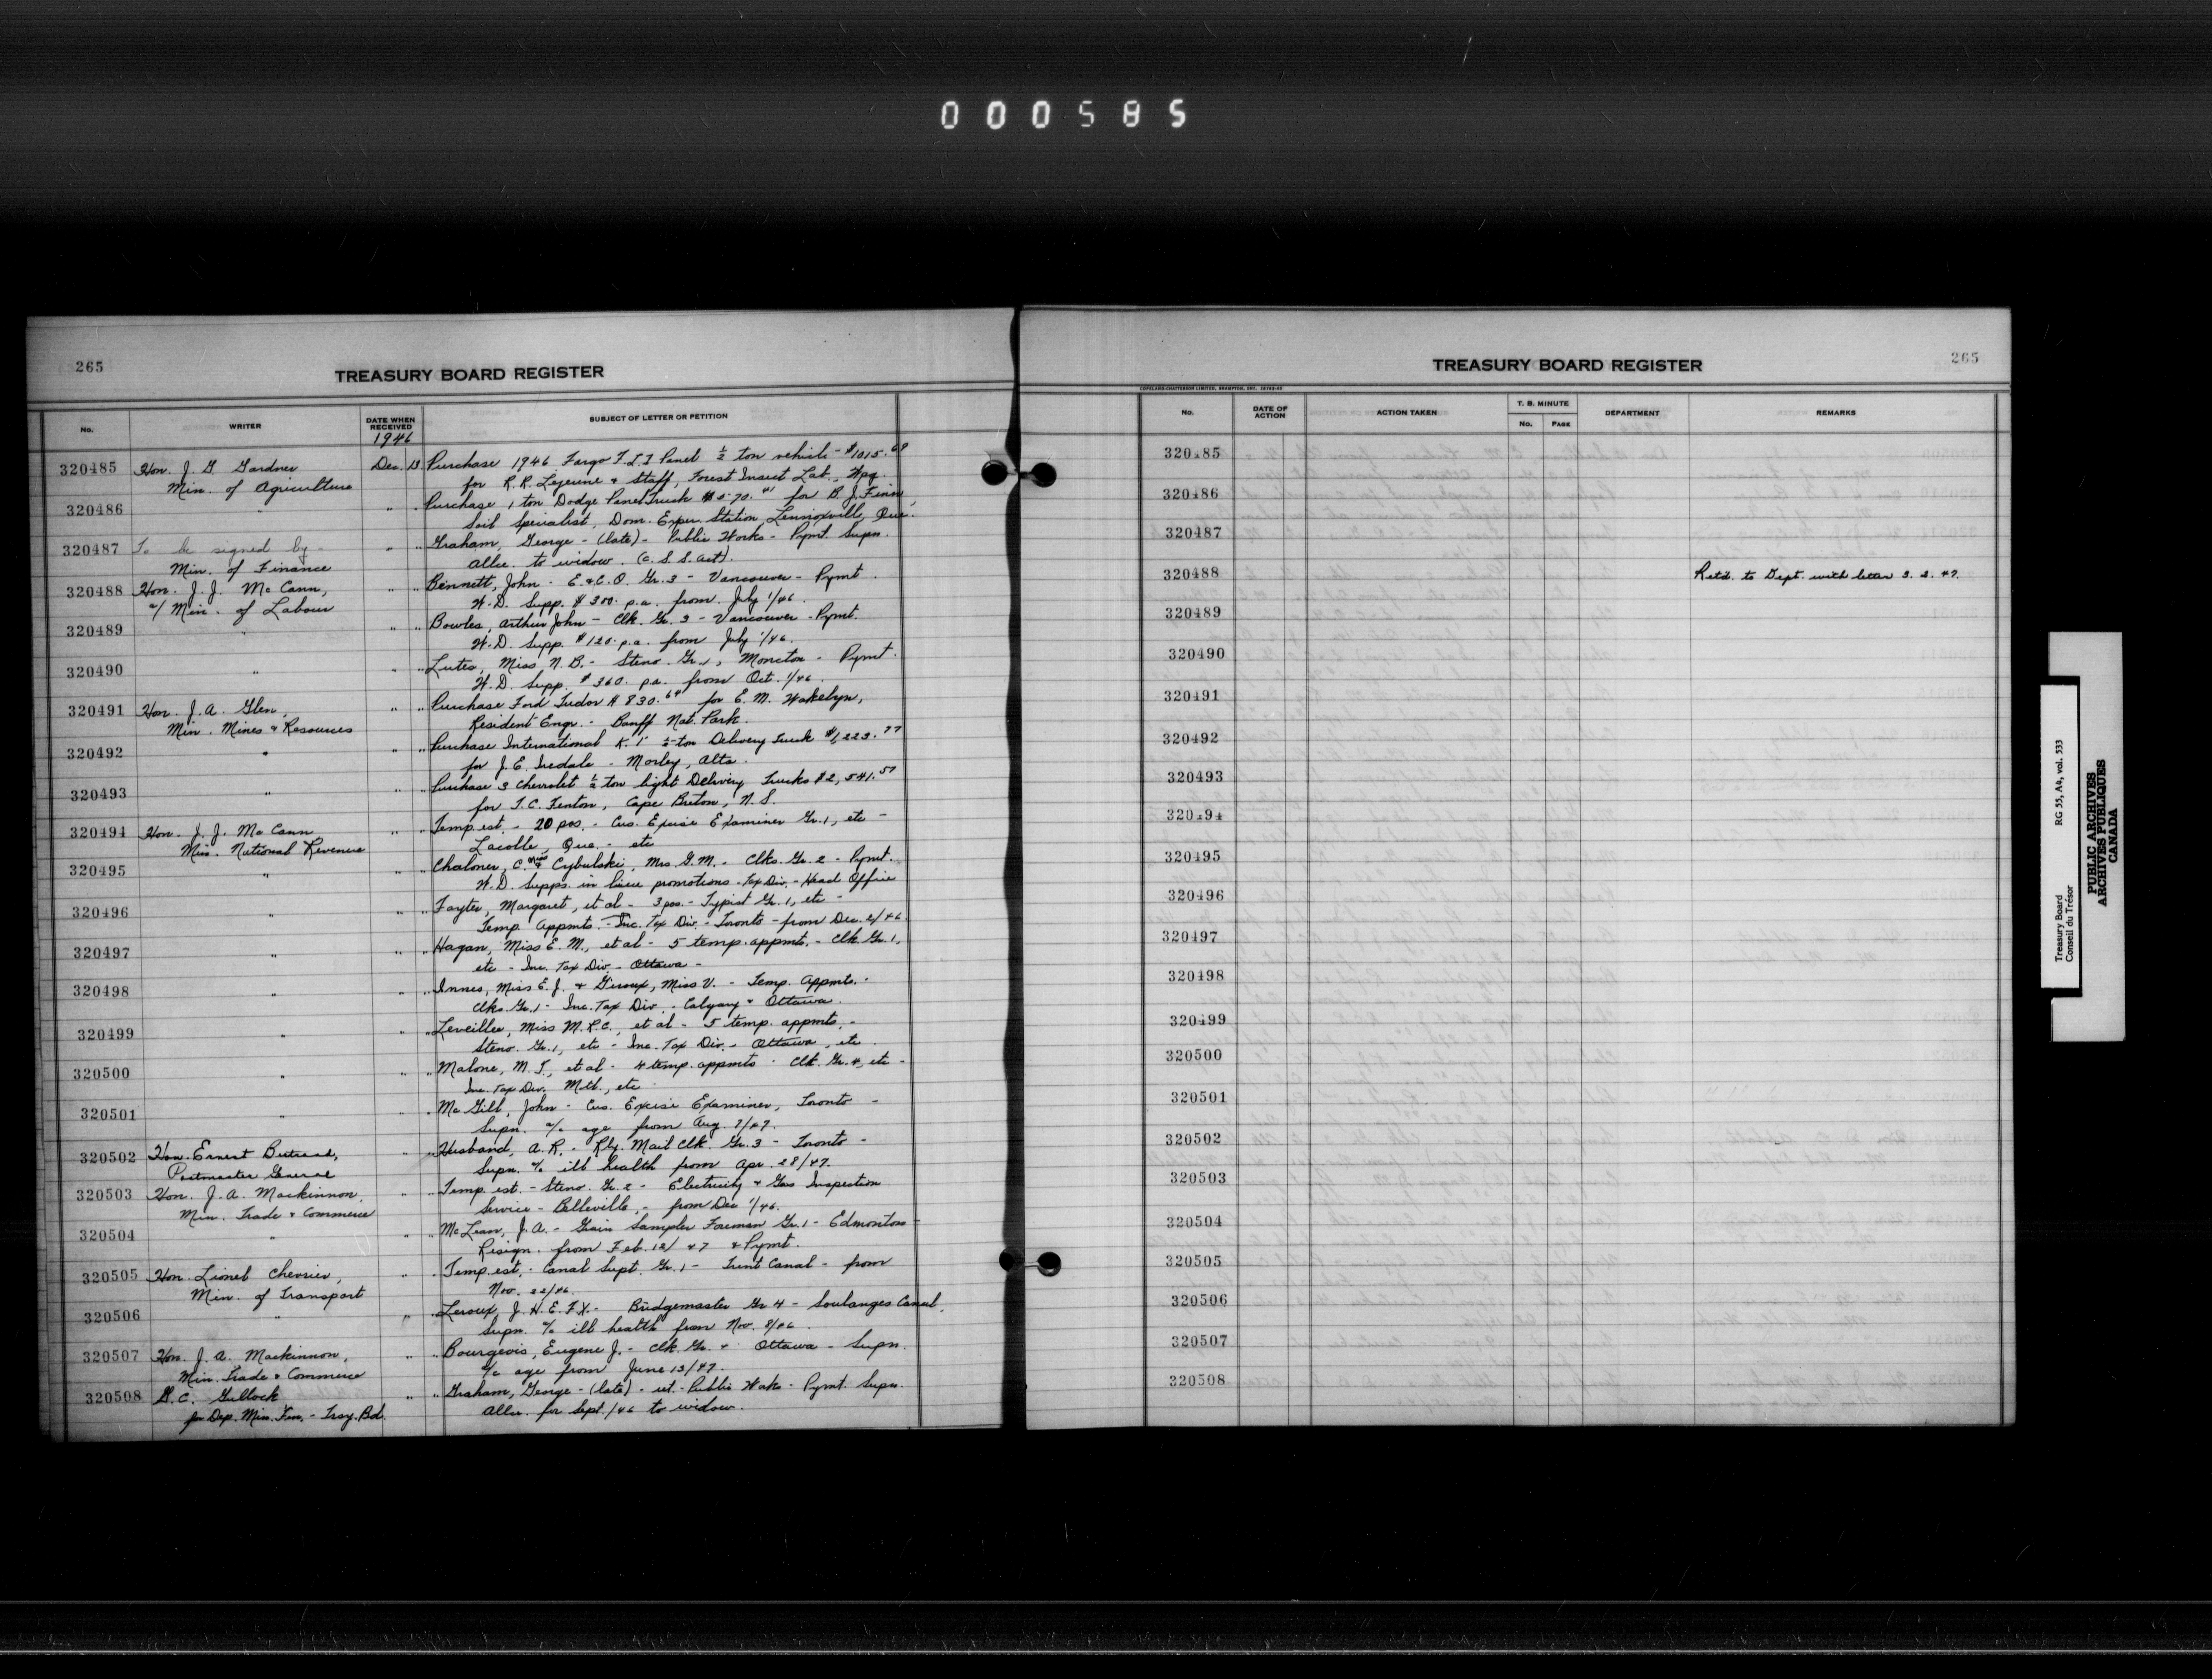 000585
265
TREASURY BOARD REGISTER
No.
WRITER
DATE WHEN RECEIVED
1946
SUBJECT OF LETTER OR PETITION
320485 Hon. J. G. Gardner Dec. 13 Purchase 1946 Fargo F.L.1 Panel ½ ton vehicle - $1015.68
Min. of Agriculture for R. R. Lejeune & Staff, Forest Insect Lab., Wpg.
320486 " " " Purchase 1 ton Dodge Panel Truck for B. J. Finn
Soil Specialist, Dom. Exper. Station, Lennoxville, Que.
320487 To be signed by - " " Graham, George - (late) - Public Works - Pymt. Supn.
Min. of Finance Allce. to widow. (C.S.S. Act).
320488 Hon. J. J. McCann, " " Bennett, John - E.&C.O. Gr. 3 - Vancouver - Pymt.
a/ Min. of Labour W.D. Supp. $300. p.a. from July 1/46.
320489 " " " Bowles, Arthur John - Clk. Gr. 3 - Vancouver - Pymt.
W.D. Supp. $120. p.a. from July 1/46.
320490 " " " Lutes, Miss N. B. - Steno. Gr. 1, Moncton - Pymt.
W.D. Supp. $360. p.a. from Oct. 1/46.
320491 Hon. J. A. Glen, " " Purchase Ford Tudor $830.64 for E. M. Wakelyn,
Min. Mines & Resources Resident Engr. - Banff Nat. Park.
320492 " " " Purchase International K.1 ½-ton Delivery Truck $1,223.77
for J. E. Iredale - Morley, Alta.
320493 " " " Purchase 3 Chevrolet ½ ton light Delivery Trucks $2,541.57
for T. C. Fenton, Cape Breton, N.S.
320494 Hon. J. J. McCann " " Temp. est. - 20 pos. - Cus. Excise Examiner Gr. 1, etc -
Min. National Revenue Lacolle, Que. - etc
320495 " " " Chaloner, C. Miss & Cybulski, Mrs. G. M. - Clks. Gr. 2 - Pymt.
W.D. Supps. in lieu promotions - Tax Div. - Head Office
320496 " " " Fayter, Margaret, et al - 3 pos. - Typist Gr. 1, etc -
Temp. Appmts. - Inc. Tax Div. - Toronto - from Dec. 2/46.
320497 " " " Hagan, Miss E. M., et al - 5 temp. appmts. - Clk. Gr. 1,
etc - Inc. Tax Div. - Ottawa -
320498 " " " Innes, Miss E. J. & Giroux, Miss V. - Temp. Appmts. -
Clks. Gr. 1 - Inc. Tax Div. - Calgary & Ottawa.
320499 " " " Leveillee, Miss M.R.C., et al - 5 temp. appmts. -
Steno. Gr. 1, etc - Inc. Tax Div. - Ottawa, etc.
320500 " " " Malone, M. J., et al - 4 temp. appmts - Clk. Gr. 4, etc -
Inc. Tax Div. Mtl., etc -
320501 " " " McGill, John - Cus. Excise Examiner, Toronto -
Supn. a/c age from Aug. 7/47.
320502 Hon. Ernest Bertrand, " " Husband, A. R. - Rly. Mail Clk. Gr. 3 - Toronto -
Postmaster General Supn. a/c ill health from Apr. 28/47.
320503 Hon. J. A. Mackinnon, " " Temp. est. - Steno. Gr. 2 - Electricity & Gas Inspection
Min. Trade & Commerce Service - Belleville, - from Dec. 1/46.
320504 " " " McLean, J. A. - Grain Sampler Foreman Gr. 1 - Edmonton -
Resign. from Feb. 12/47 & Pymt.
320505 Hon. Lionel Chevrier, " " Temp. est. - Canal Supt. Gr. 1 - Trent Canal - from
Min. of Transport Nov. 22/46.
320506 " " " Leroux, J. H. E. F. X. - Bridgemaster Gr 4 - Soulanges Canal,
Supn. a/c ill health from Nov. 8/46.
320507 Hon. J. A. Mackinnon, " " Bourgeois, Eugene J. - Clk. Gr. 4 Ottawa - Supn.
Min. Trade & Commerce a/c age from June 13/47.
320508 G. C. Gullock " " Graham, George - (late) - ret. - Public Wks - Pymt. Supn.
for Dep. Min. Fin. - Trsy. Bd. Allce. for Sept./46 to widow.
265
TREASURY BOARD REGISTER
COPELAND-CHATTERSON LIMITED, BRAMPTON, ONT.
No.
DATE OF ACTION
ACTION TAKEN
T. B. MINUTE
No.
PAGE
DEPARTMENT
REMARKS
320485
320486
320487
320488 Ret'd. to Dept. with letter 3.2.47.
320489
320490
320491
320492
320493
320494
320495
320496
320497
320498
320499
320500
320501
320502
320503
320504
320505
320506
320507
320508
Treasury Board RG 55, A4, vol. 533
Conseil du Trésor
PUBLIC ARCHIVES
ARCHIVES PUBLIQUES
CANADA